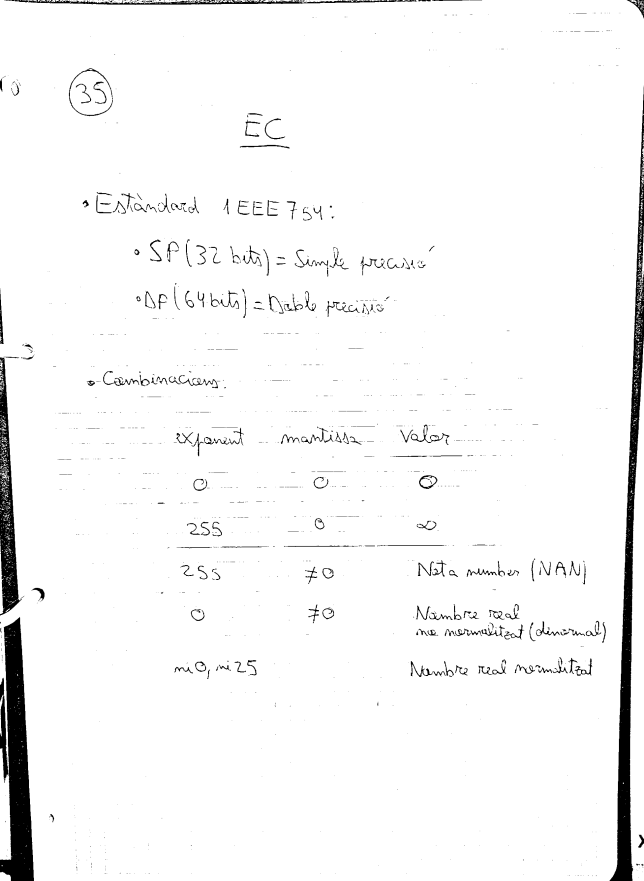 35
EC
• Estàndard IEEE 754:
• SP (32 bits) = Simple precisió
• DP (64 bits) = Doble precisió
• Combinacions:
exponent mantissa Valor
0 0 0
255 0 ∞
255 ≠0 Not a number (NAN)
0 ≠0 Nombre real
no normalitzat (denormal)
ni 0, ni 25 Nombre real normalitzat